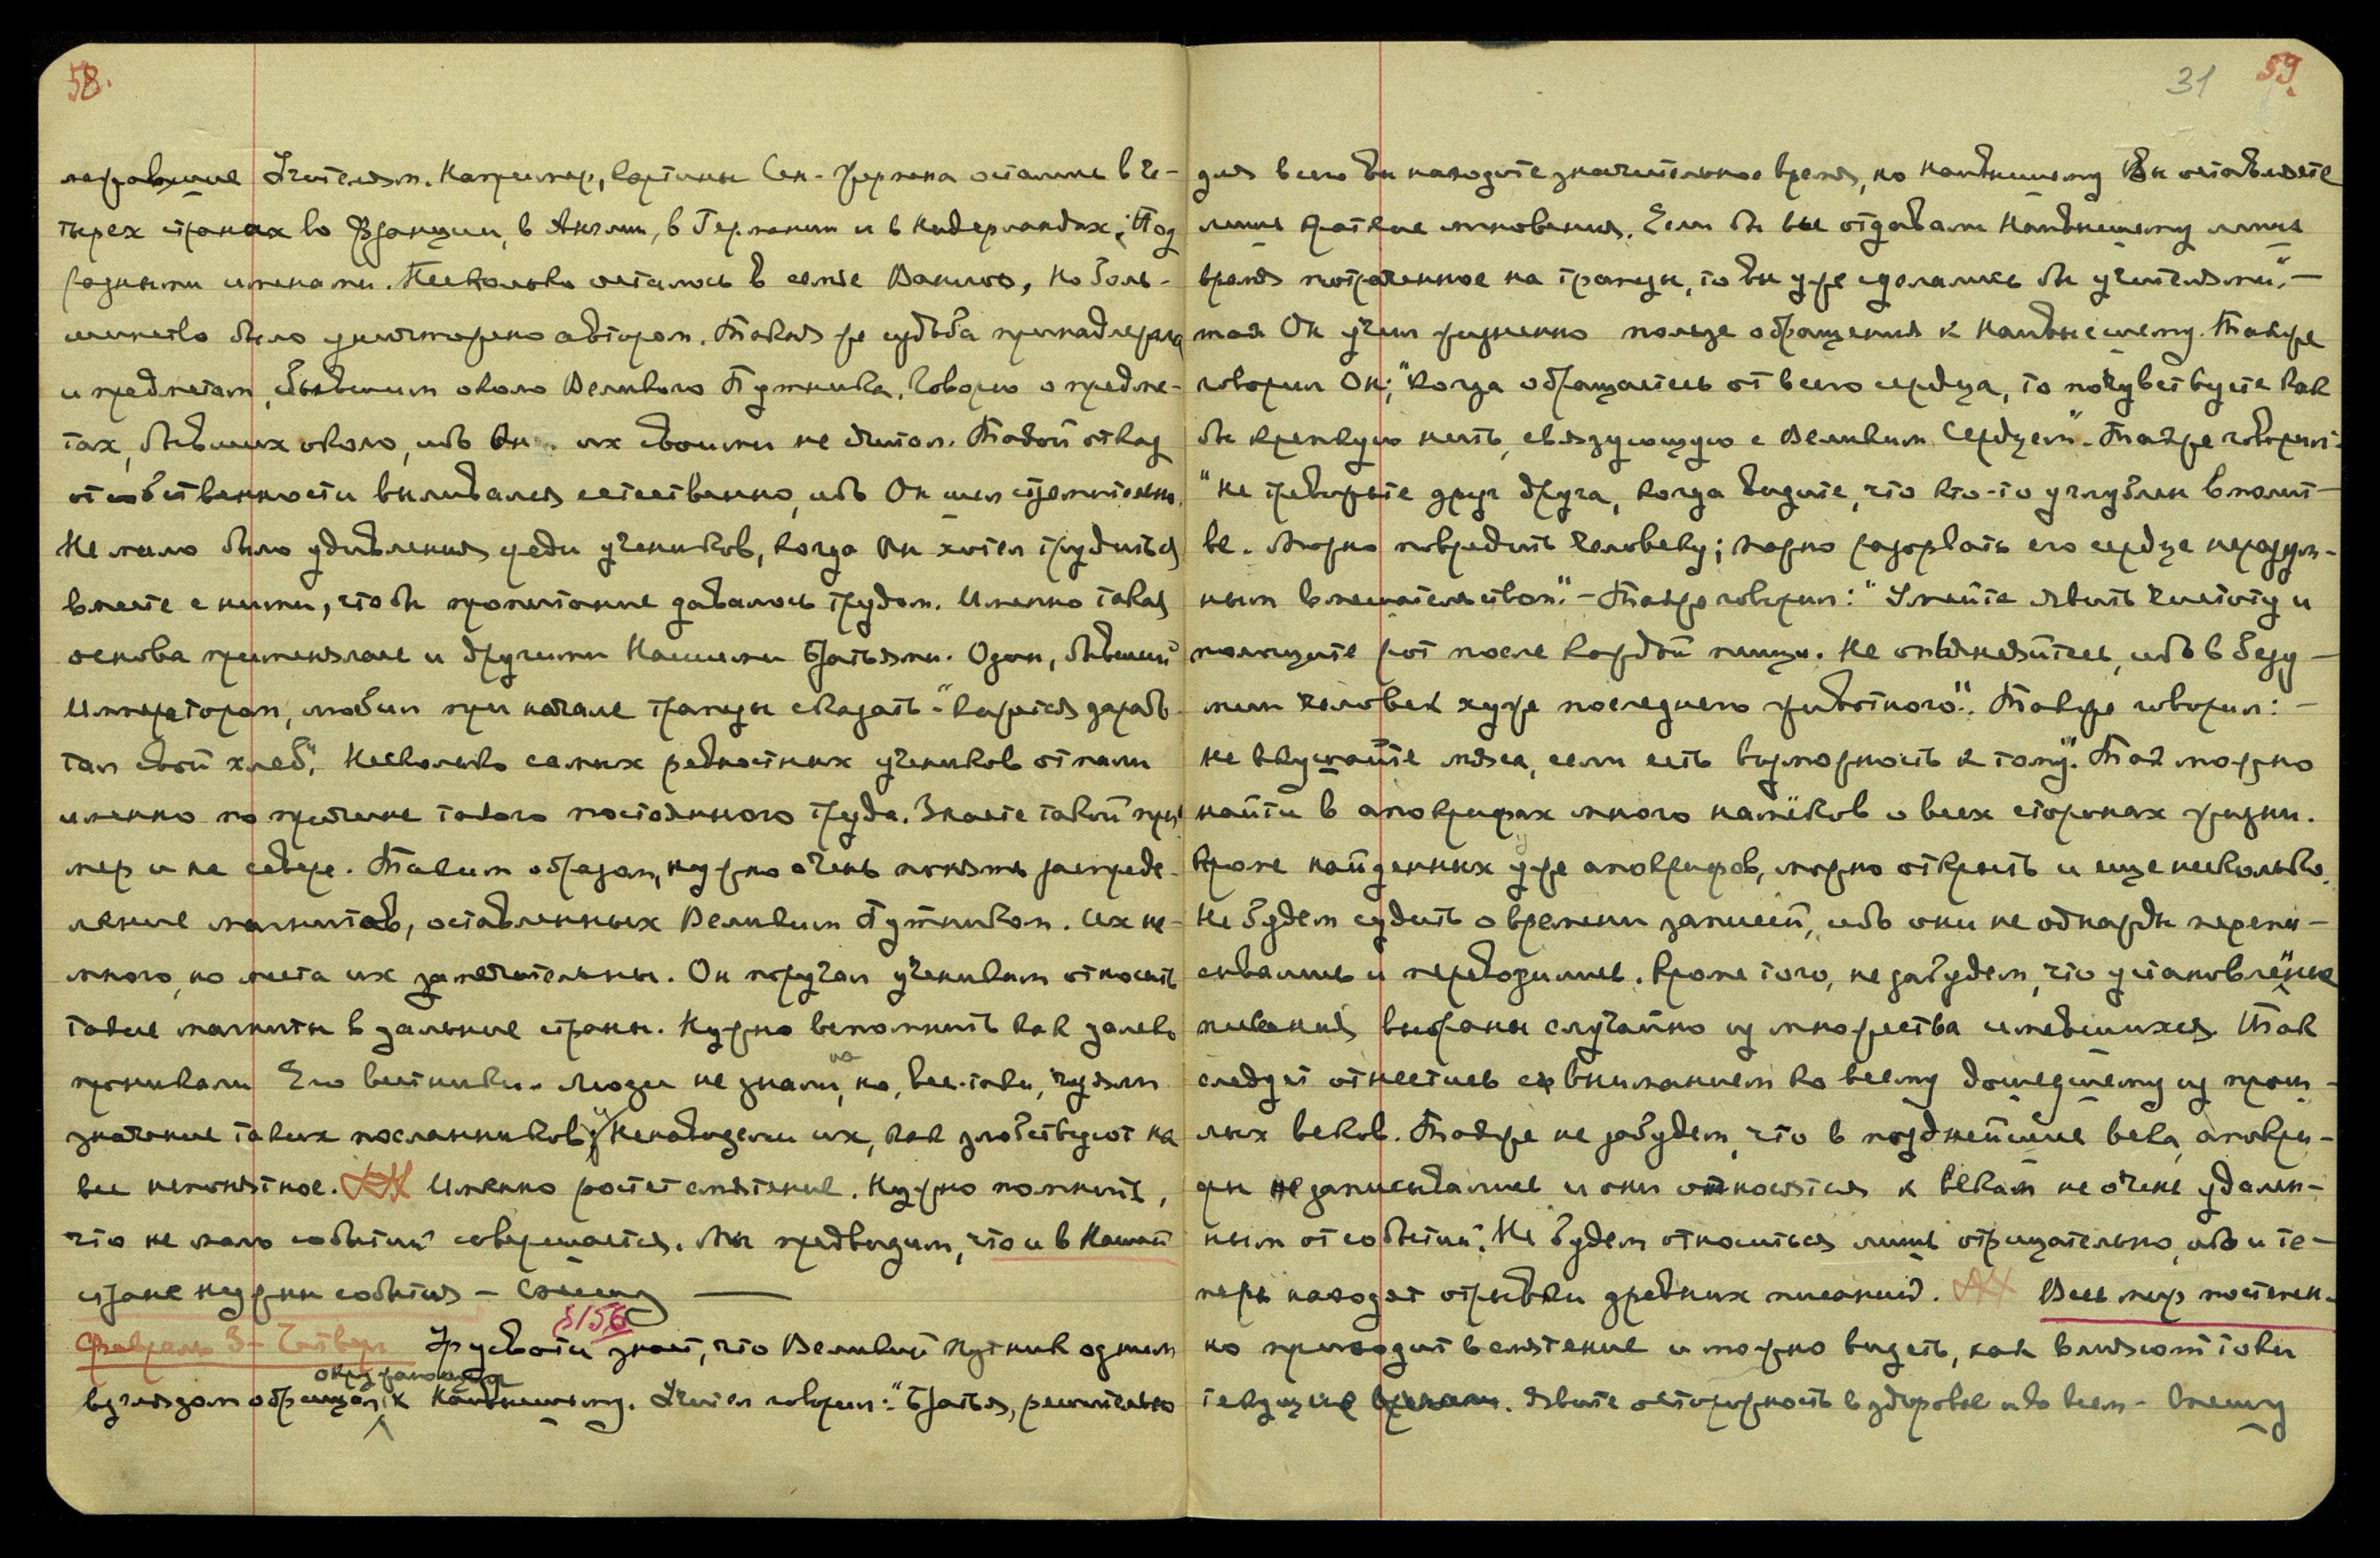 58.
лежавшие Учителям. Например, картины Сен-Жермена остались в че-
тырех странах во Франции, в Англии, в Германии и в Нидерландах; Под
разными именами. Несколько осталось в семье Ванлоо, но боль-
шинство было уничтожено автором. Такая же судьба принадлежала
и предметам, бывшим около Великого Путника. Говорю о предме-
тах, бывших около, ибо Он их своими не считал. Такой отказ
от собственности выливался естественно, ибо Он шел стремительно.
Не мало было удивления среди учеников, когда Он хотел трудиться
вместе с ними, чтобы пропитание давалось трудом. Именно такая
основа применялась и другими Нашими Братьями. Один, бывший
Императором, любил при начале трапезы сказать - "кажется зарабо-
тал свой хлеб". Несколько самых ревностных учеников отпали
именно по причине такого постоянного труда. Знаете такой при-
мер и на севере. Таким образом, нужно очень понять распреде-
ление магнитов, оставленных Великим Путником. Их не-
много, но места их замечательны. Он поручал ученикам относить
такие магниты в дальние страны. Нужно вспомнить как далеко
проникали Его вестники. Люди не знали, но, все-таки, чуяли
значение таких посланников; Ненавидели их, как злобствуют на
все непонятное. Именно растет смятение. Нужно помнить,
что не мало событий совершается. Мы предвидим, что и в Нашей
стране нужны события - Спешу
§156
Февраль 3 - Четверг Урусвати знает, что Великий Путник одним
окружающих
взглядом обращал к Наивысшему. Учитель говорил: "Братья, решительно
31 59.
для всего вы находите значительное время, но Наивысшему Вы оставляете
лишь краткие мгновения. Если бы вы отдавали Наивысшему лишь
время потраченное на трапезы, то вы уже сделались бы учителями". -
так Он учил жизненно пользе обращения к Наивысшему. Также
говорил Он; "Когда обращаетесь от всего сердца, то почувствуете как
бы крепкую нить, связующую с Великим Сердцем". Также говорил:
"Не тревожьте друг друга, когда видите, что кто-то углублен в молит-
ве. Можно повредить человеку; можно разорвать его сердце неразум-
ным вмешательством". - Также говорил: "Умейте явить чистоту и
полощите рот после каждой пищи. Не опьяняйтесь, ибо в безу-
мии человек хуже последнего животного". Также говорил: -
не вкушайте мяса, если есть возможность к тому". Так можно
найти в апокрифах много намёков о всех сторонах жизни.
Кроме найденных уже апокрифов, можно открыть и еще несколько.
Не будем судить о времени записей, ибо они не однажды перепи-
сывались и переводились. Кроме того, не забудем, что установлёные
писания выбраны случайно из множества имевшихся. Так
следует отнестись со вниманием ко всему дошедшему из прош-
лых веков. Также не забудем, что в позднейшие века, апокри-
фы не записывались и они относятся к векам не очень удален-
ным от событий. Не будем относиться лишь отрицательно, ибо и те-
перь находят отрывки древних писаний. Весь мир постепен-
но приходит в смятение и можно видеть, как влияют токи
текущие. Явите осторожность в здоровье и во всем - Спешу